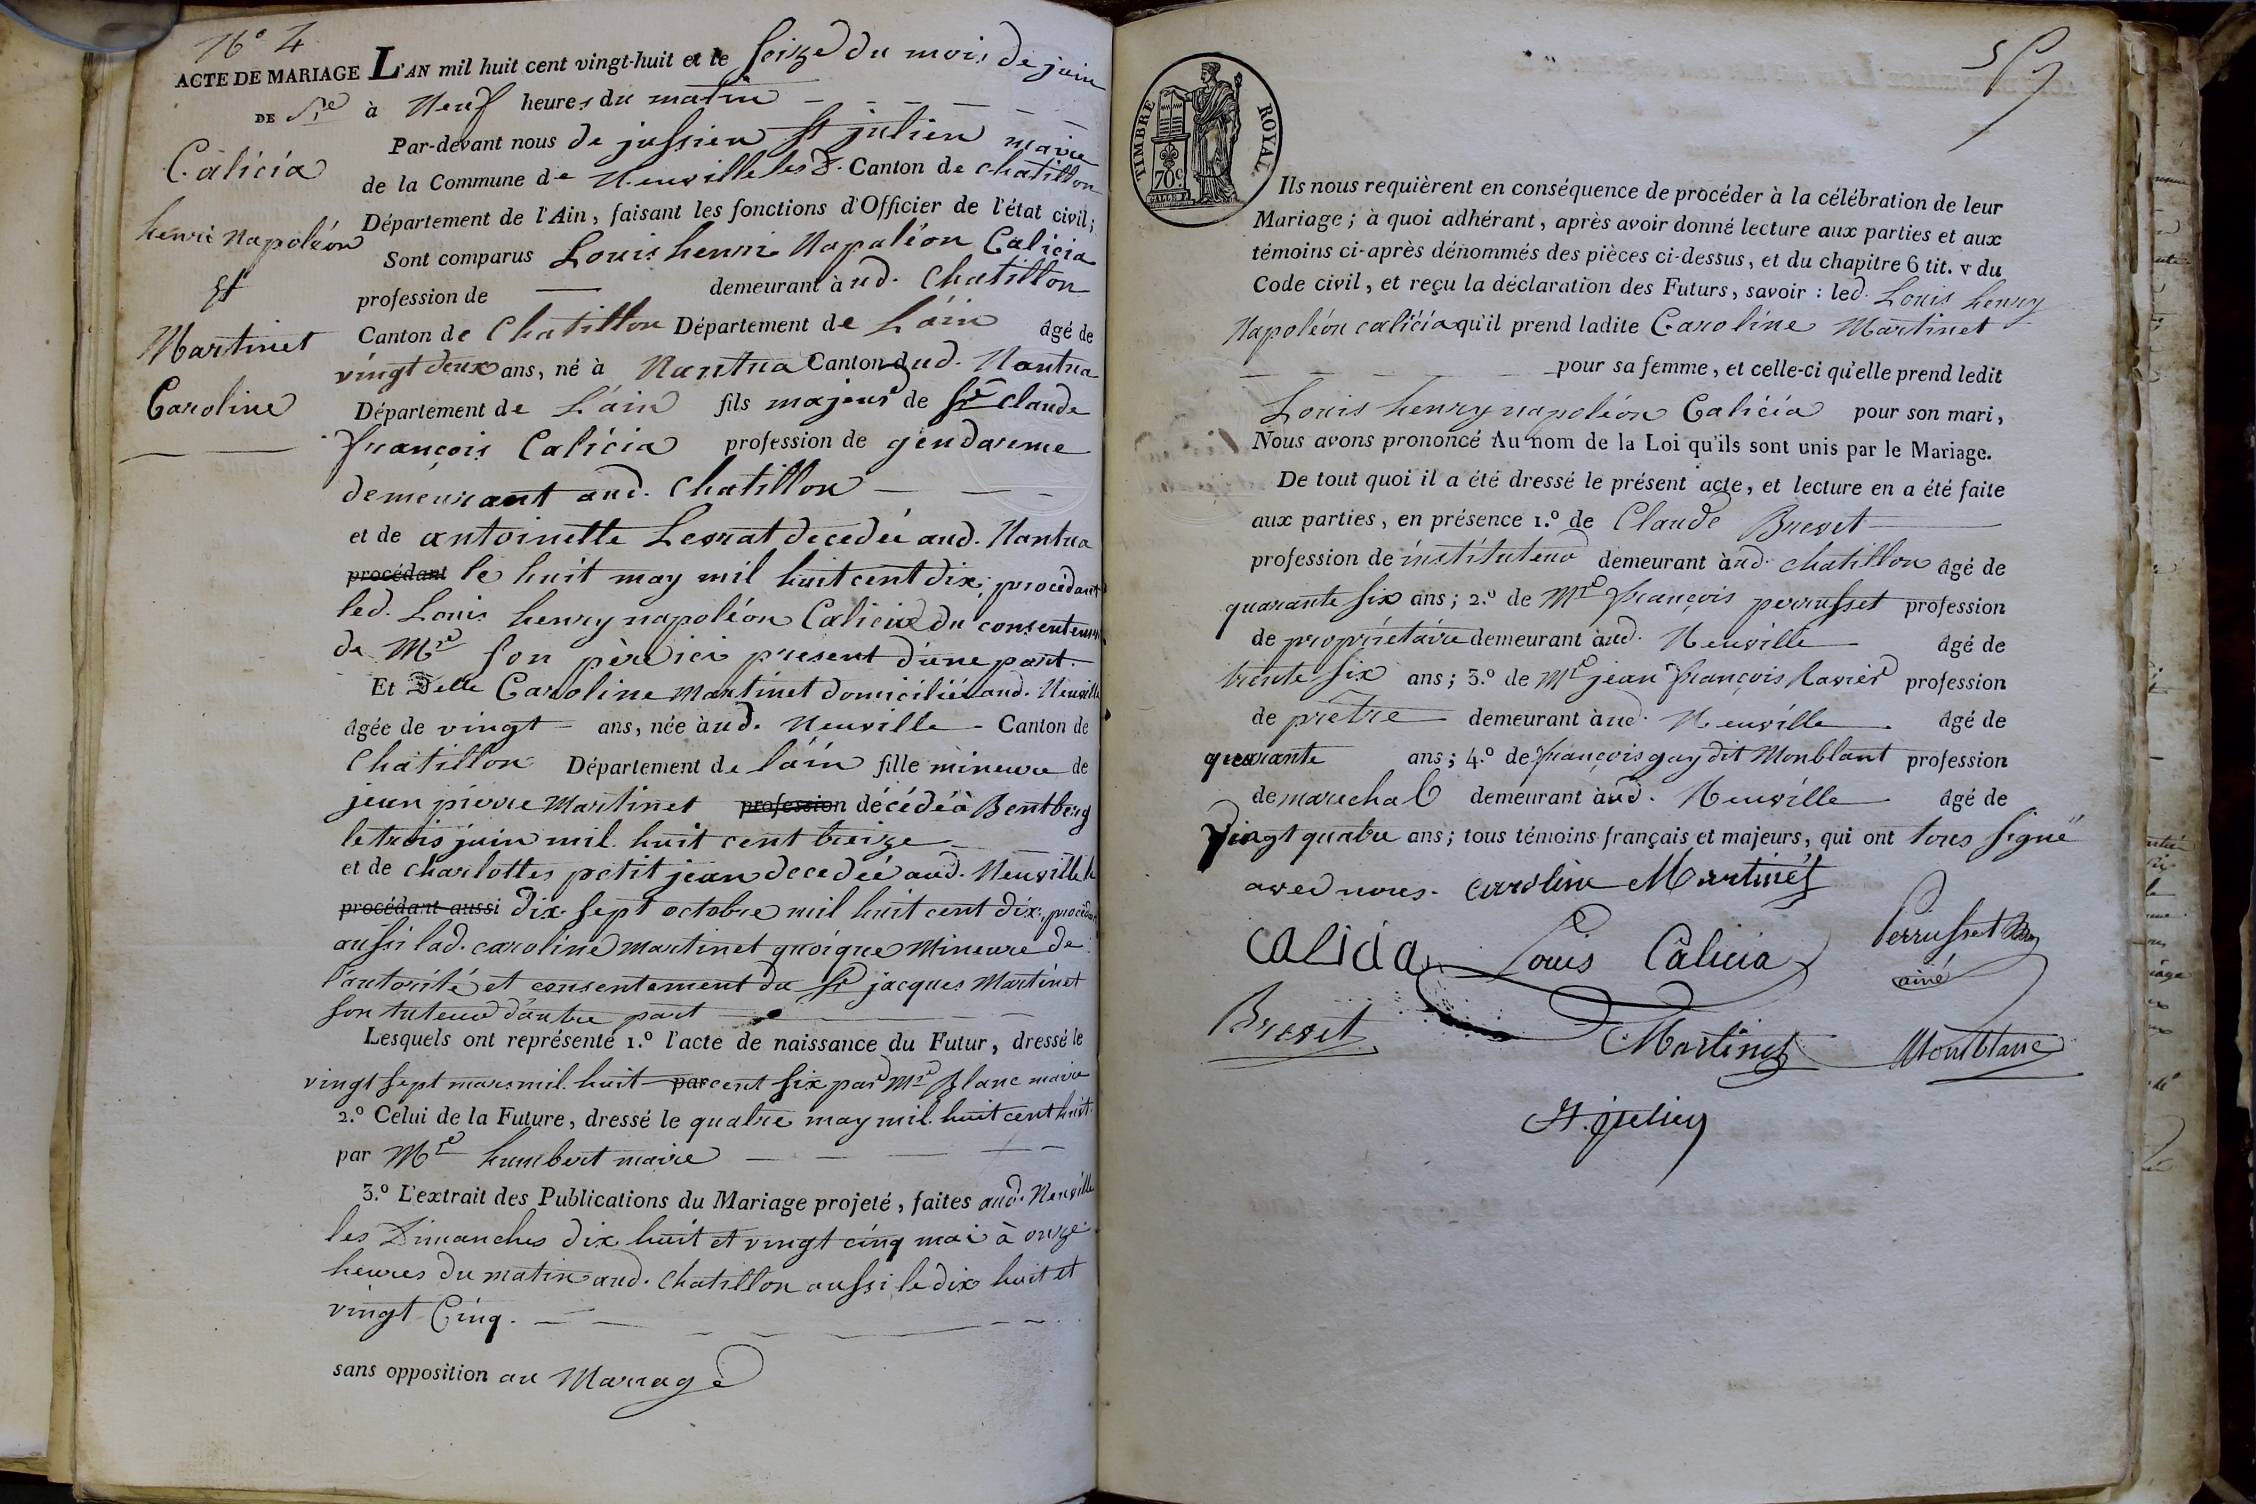 N° 4
ACTE DE MARIAGE
DE Sr
Calicia
henri Napoléon
Et
Martinet
Caroline
L'AN mil huit cent vingt-huit et le Seize du mois de juin
à Neuf heures du matin
Par-devant nous de jussieu St julien maire
de la Commune de Neuville les D. Canton de chatillon
Département de l'Ain, faisant les fonctions d'Officier de l'état civil;
Sont comparus Louis henri Napoléon Calicia
profession de demeurant à ud. Chatillon
Canton de Chatillon Département de L'ain âgé de
vingt deux ans, né à Nantua Canton dud. Nantua
Département de L'ain fils majeur de Sr Claude
françois Calicia profession de gendarme
demeurant aud. Chatillon
et de antoinette Levrat decedée aud. Nantua
procédant le huit may mil huit cent dix; procédant
led. Louis henry napoléon Calicia du consentement
de Mr son père ici present d'une part.
Et Delle Caroline Martinet domiciliée aud. Neuville
âgée de vingt ans, née à ud. Neuville Canton de
Chatillon Département de l'ain fille mineure de
jean pierre Martinet profession décédé à Bentberg
le trois juin mil huit cent treize
et de charlottes petit jean decedée aud. Neuville le
procédant aussi Dix sept octobre mil huit cent dix, procédant
aussi lad. caroline martinet quoique Mineure de
l'autorité et consentement du Sr jacques Martinet
son tuteur d'autre part
Lesquels ont représenté 1.° l'acte de naissance du Futur, dressé le
vingt sept mars mil huit par cent six par Mr Blanc maire
2.° Celui de la Future, dressé le quatre may mil huit cent huit
par Mr humbert maire
3.° L'extrait des Publications du Mariage projeté, faites aud. Neuville
les Dimanches dix huit et vingt cinq mai à onze
heures du matin aud. Chatillon aussi le dix huit et
vingt Cinq.
sans opposition au Mariage
TIMBRE ROYAL
70c
Ils nous requièrent en conséquence de procéder à la célébration de leur
Mariage; à quoi adhérant, après avoir donné lecture aux parties et aux
témoins ci-après dénommés des pièces ci-dessus, et du chapitre 6 tit. v du
Code civil, et reçu la déclaration des Futurs, savoir: led. Louis henry
Napoléon calicia qu'il prend ladite Caroline Martinet
pour sa femme, et celle-ci qu'elle prend ledit
Louis henry napoléon Calicia pour son mari,
Nous avons prononcé Au nom de la Loi qu'ils sont unis par le Mariage.
De tout quoi il a été dressé le présent acte, et lecture en a été faite
aux parties, en présence 1.° de Claude Brevet
profession de instituteur demeurant à ud. chatillon âgé de
quarante six ans; 2.° de Mr françois perrusset profession
de propriétaire demeurant à ud. Neuville âgé de
trente six ans; 3.° de Mr jean françois Ravier profession
de prêtre demeurant à ud. Neuville âgé de
quarante ans; 4.° de françois guy dit Monblant profession
de marechal demeurant à ud. Neuville âgé de
Vingt quatre ans; tous témoins français et majeurs, qui ont tous signé
avec nous. caroline Martinet
CALICIA Louis Câlicia Perrusset
ainé
Brevet Martinet Montblanc
St. julien